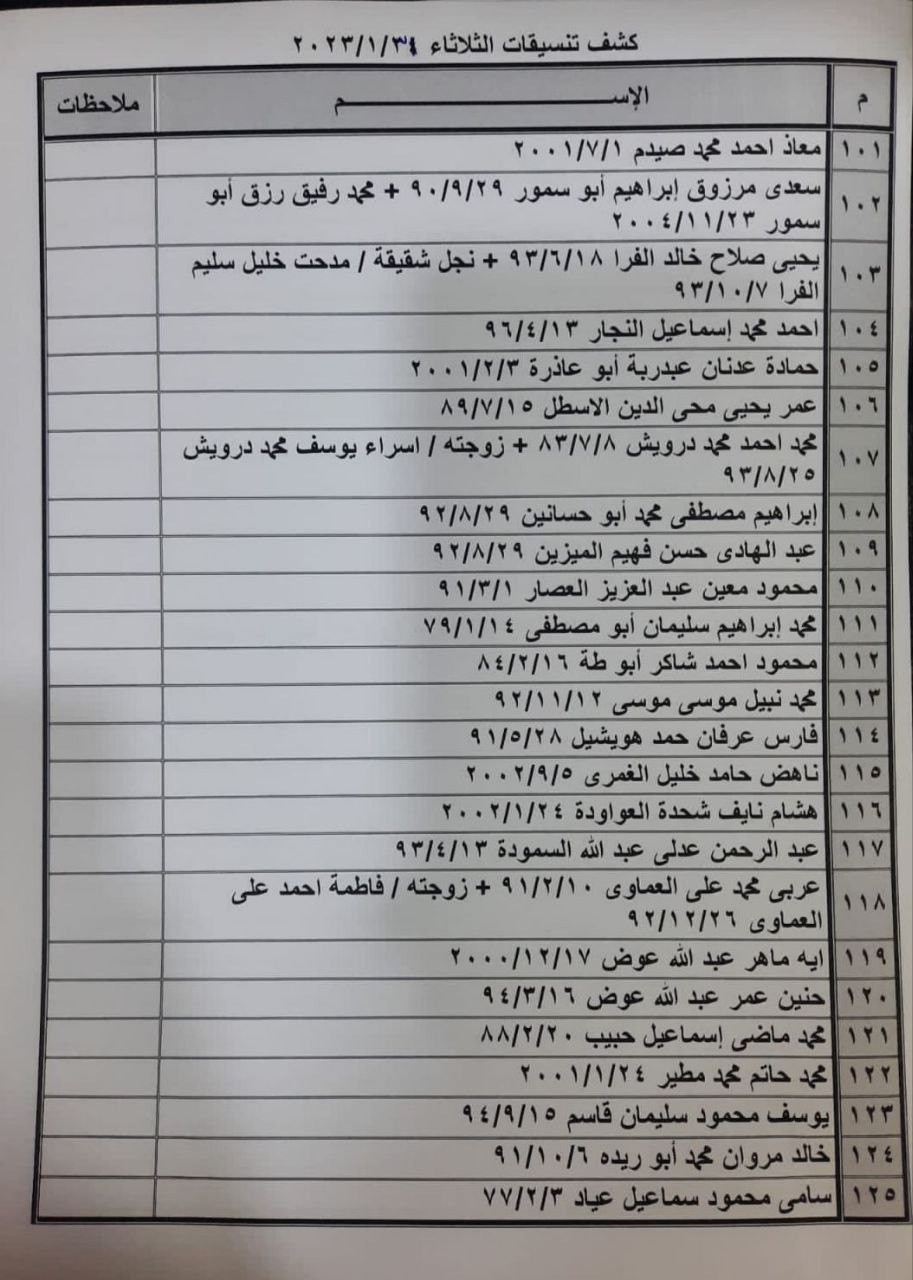 كشف تنسيقات الثلاثاء ٢٠٢٣/١/٣١
م الإســــــم ملاحظات
١٠١ معاذ احمد محمد صيدم ٢٠٠١/٧/١
١٠٢ سعدى مرزوق إبراهيم أبو سمور ٩٠/٩/٢٩ + محمد رفيق رزق أبو
سمور ٢٠٠٤/١١/٢٣
١٠٣ يحيى صلاح خالد الفرا ٩٣/٦/١٨ + نجل شقيقة / مدحت خليل سليم
الفرا ٩٣/١٠/٧
١٠٤ احمد محمد إسماعيل النجار ٩٦/٤/١٣
١٠٥ حمادة عدنان عبدربة أبو عاذرة ٢٠٠١/٢/٣
١٠٦ عمر يحيى محى الدين الاسطل ٨٩/٧/١٥
١٠٧ محمد احمد محمد درويش ٨٣/٧/٨ + زوجته / اسراء يوسف محمد درويش
٩٣/٨/٢٥
١٠٨ إبراهيم مصطفى محمد أبو حسانين ٩٢/٨/٢٩
١٠٩ عبد الهادى حسن فهيم الميزين ٩٢/٨/٢٩
١١٠ محمود معين عبد العزيز العصار ٩١/٣/١
١١١ محمد إبراهيم سليمان أبو مصطفى ٧٩/١/١٤
١١٢ محمود احمد شاكر أبو طة ٨٤/٢/١٦
١١٣ محمد نبيل موسى موسى ٩٢/١١/١٢
١١٤ فارس عرفان حمد هويشيل ٩١/٥/٢٨
١١٥ ناهض حامد خليل الغمرى ٢٠٠٢/٩/٥
١١٦ هشام نايف شحدة العواودة ٢٠٠٢/١/٢٤
١١٧ عبد الرحمن عدلى عبد الله السمودة ٩٣/٤/١٣
١١٨ عربى محمد على العماوى ٩١/٢/١٠ + زوجته / فاطمة احمد على
العماوى ٩٢/١٢/٢٦
١١٩ ايه ماهر عبد الله عوض ٢٠٠٠/١٢/١٧
١٢٠ حنين عمر عبد الله عوض ٩٤/٣/١٦
١٢١ محمد ماضى إسماعيل حبيب ٨٨/٢/٢٠
١٢٢ محمد حاتم محمد مطير ٢٠٠١/١/٢٤
١٢٣ يوسف محمود سليمان قاسم ٩٤/٩/١٥
١٢٤ خالد مروان محمد أبو ريده ٩١/١٠/٦
١٢٥ سامى محمود سماعيل عياد ٧٧/٢/٣